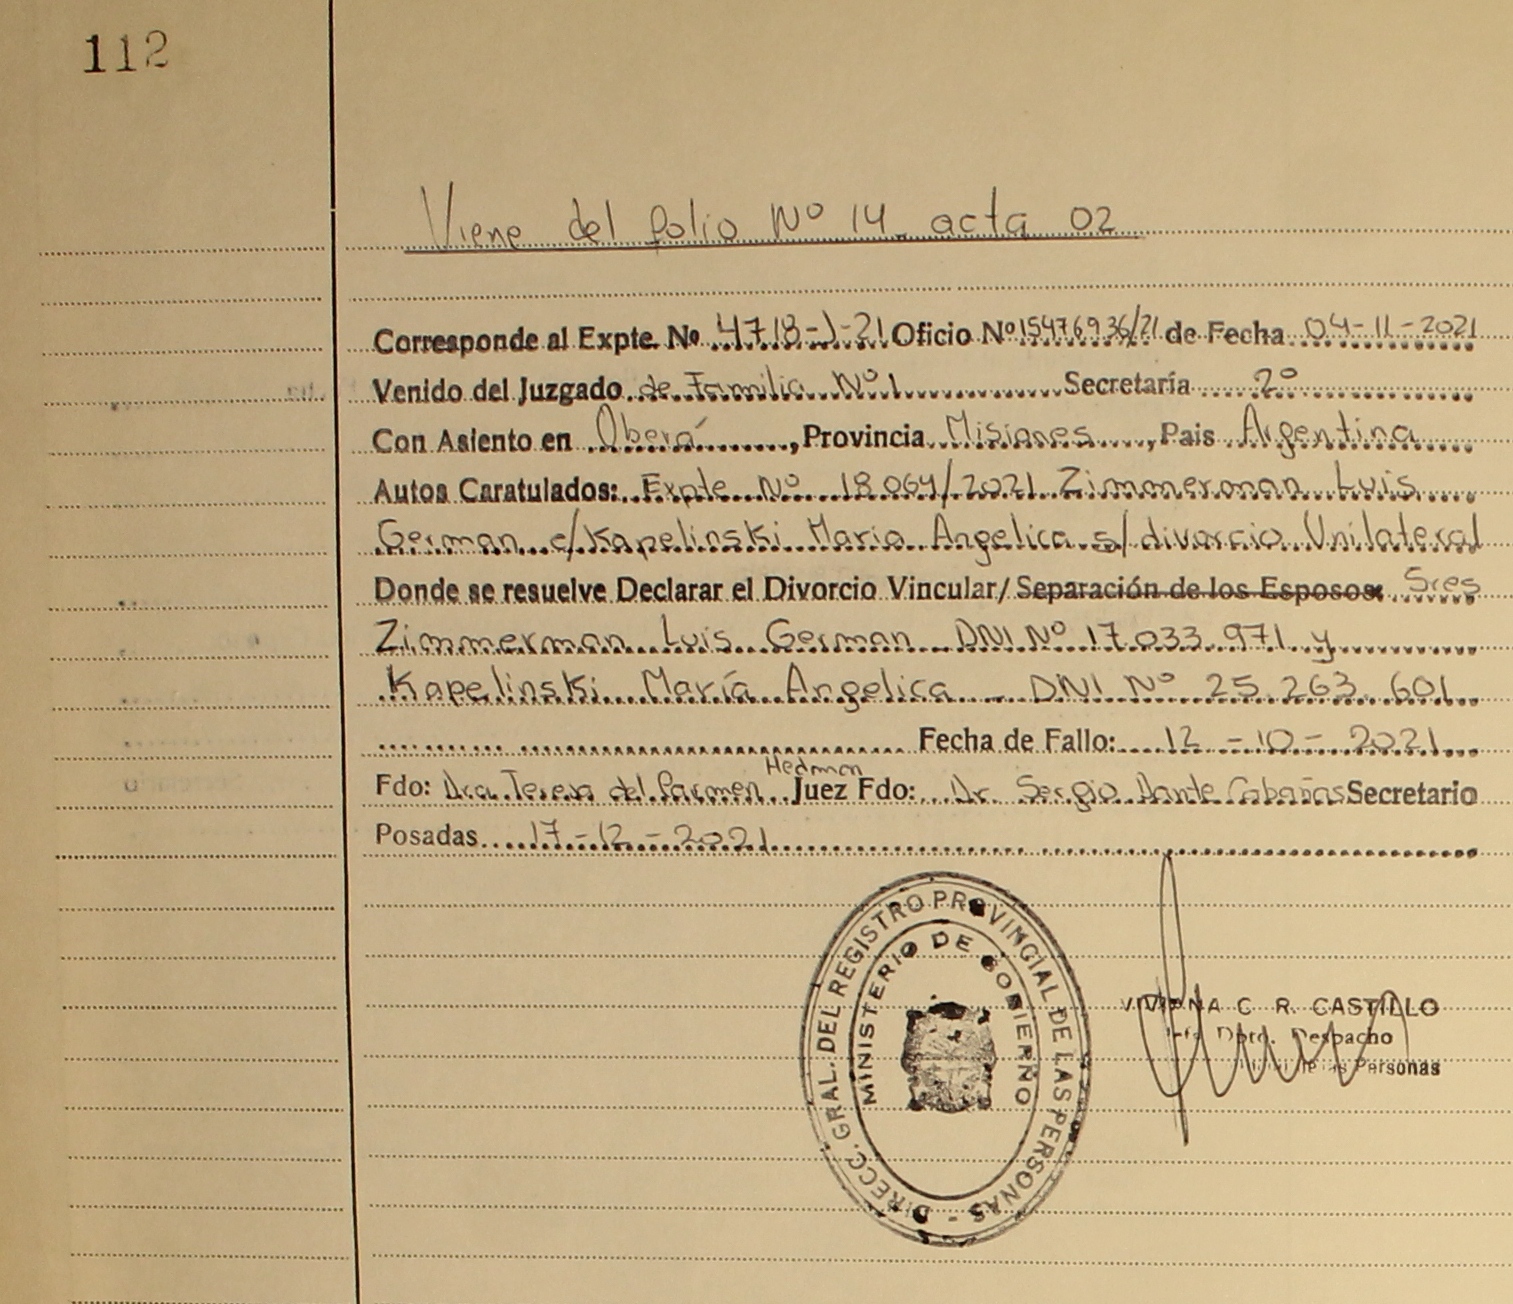 112
Viene del folio Nº 14 acta 02
Corresponde al Expte. Nº 4718-J-21 Oficio Nº 15476936/21 de Fecha 04-11-2021
Venido del Juzgado de Familia Nº 1 Secretaría 2º
Con Asiento en Oberá, Provincia Misiones, Pais Argentina
Autos Caratulados: Expte Nº 18.064/2021 Zimmerman Luis
German c/ Kapelinski Maria Angelica s/ divorcio Unilateral
Donde se resuelve Declarar el Divorcio Vincular/ Separación de los Esposos: Sres
Zimmerman Luis German DNI Nº 17.033.971 y
Kapelinski María Angelica - DNI Nº 25.263.601
Fecha de Fallo: 12-10-2021
Hedman
Fdo: Dra. Teresa del Carmen Juez Fdo: Dr. Sergio Dante Cabañas Secretario
Posadas 17-12-2021
DIRECC. GRAL. DEL REGISTRO PROVINCIAL DE LAS PERSONAS -
MINISTERIO DE GOBIERNO
VIVIANA C. R. CASTILLO
Dpto. Despacho
de las Personas